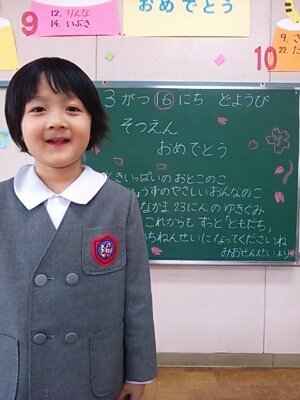 おめでとう
9
12. りんな
14. いぶき
10
9. さ
22. た
3がつ16にち どようび
そつえん
おめでとう
きいっぱいのおとこのこ
うすのやさしいおんなのこ
なかま23にんの ゆきぐみ
これからも ずっと「ともだち」
ちねんせいに なってくださいね
みおせんせいより